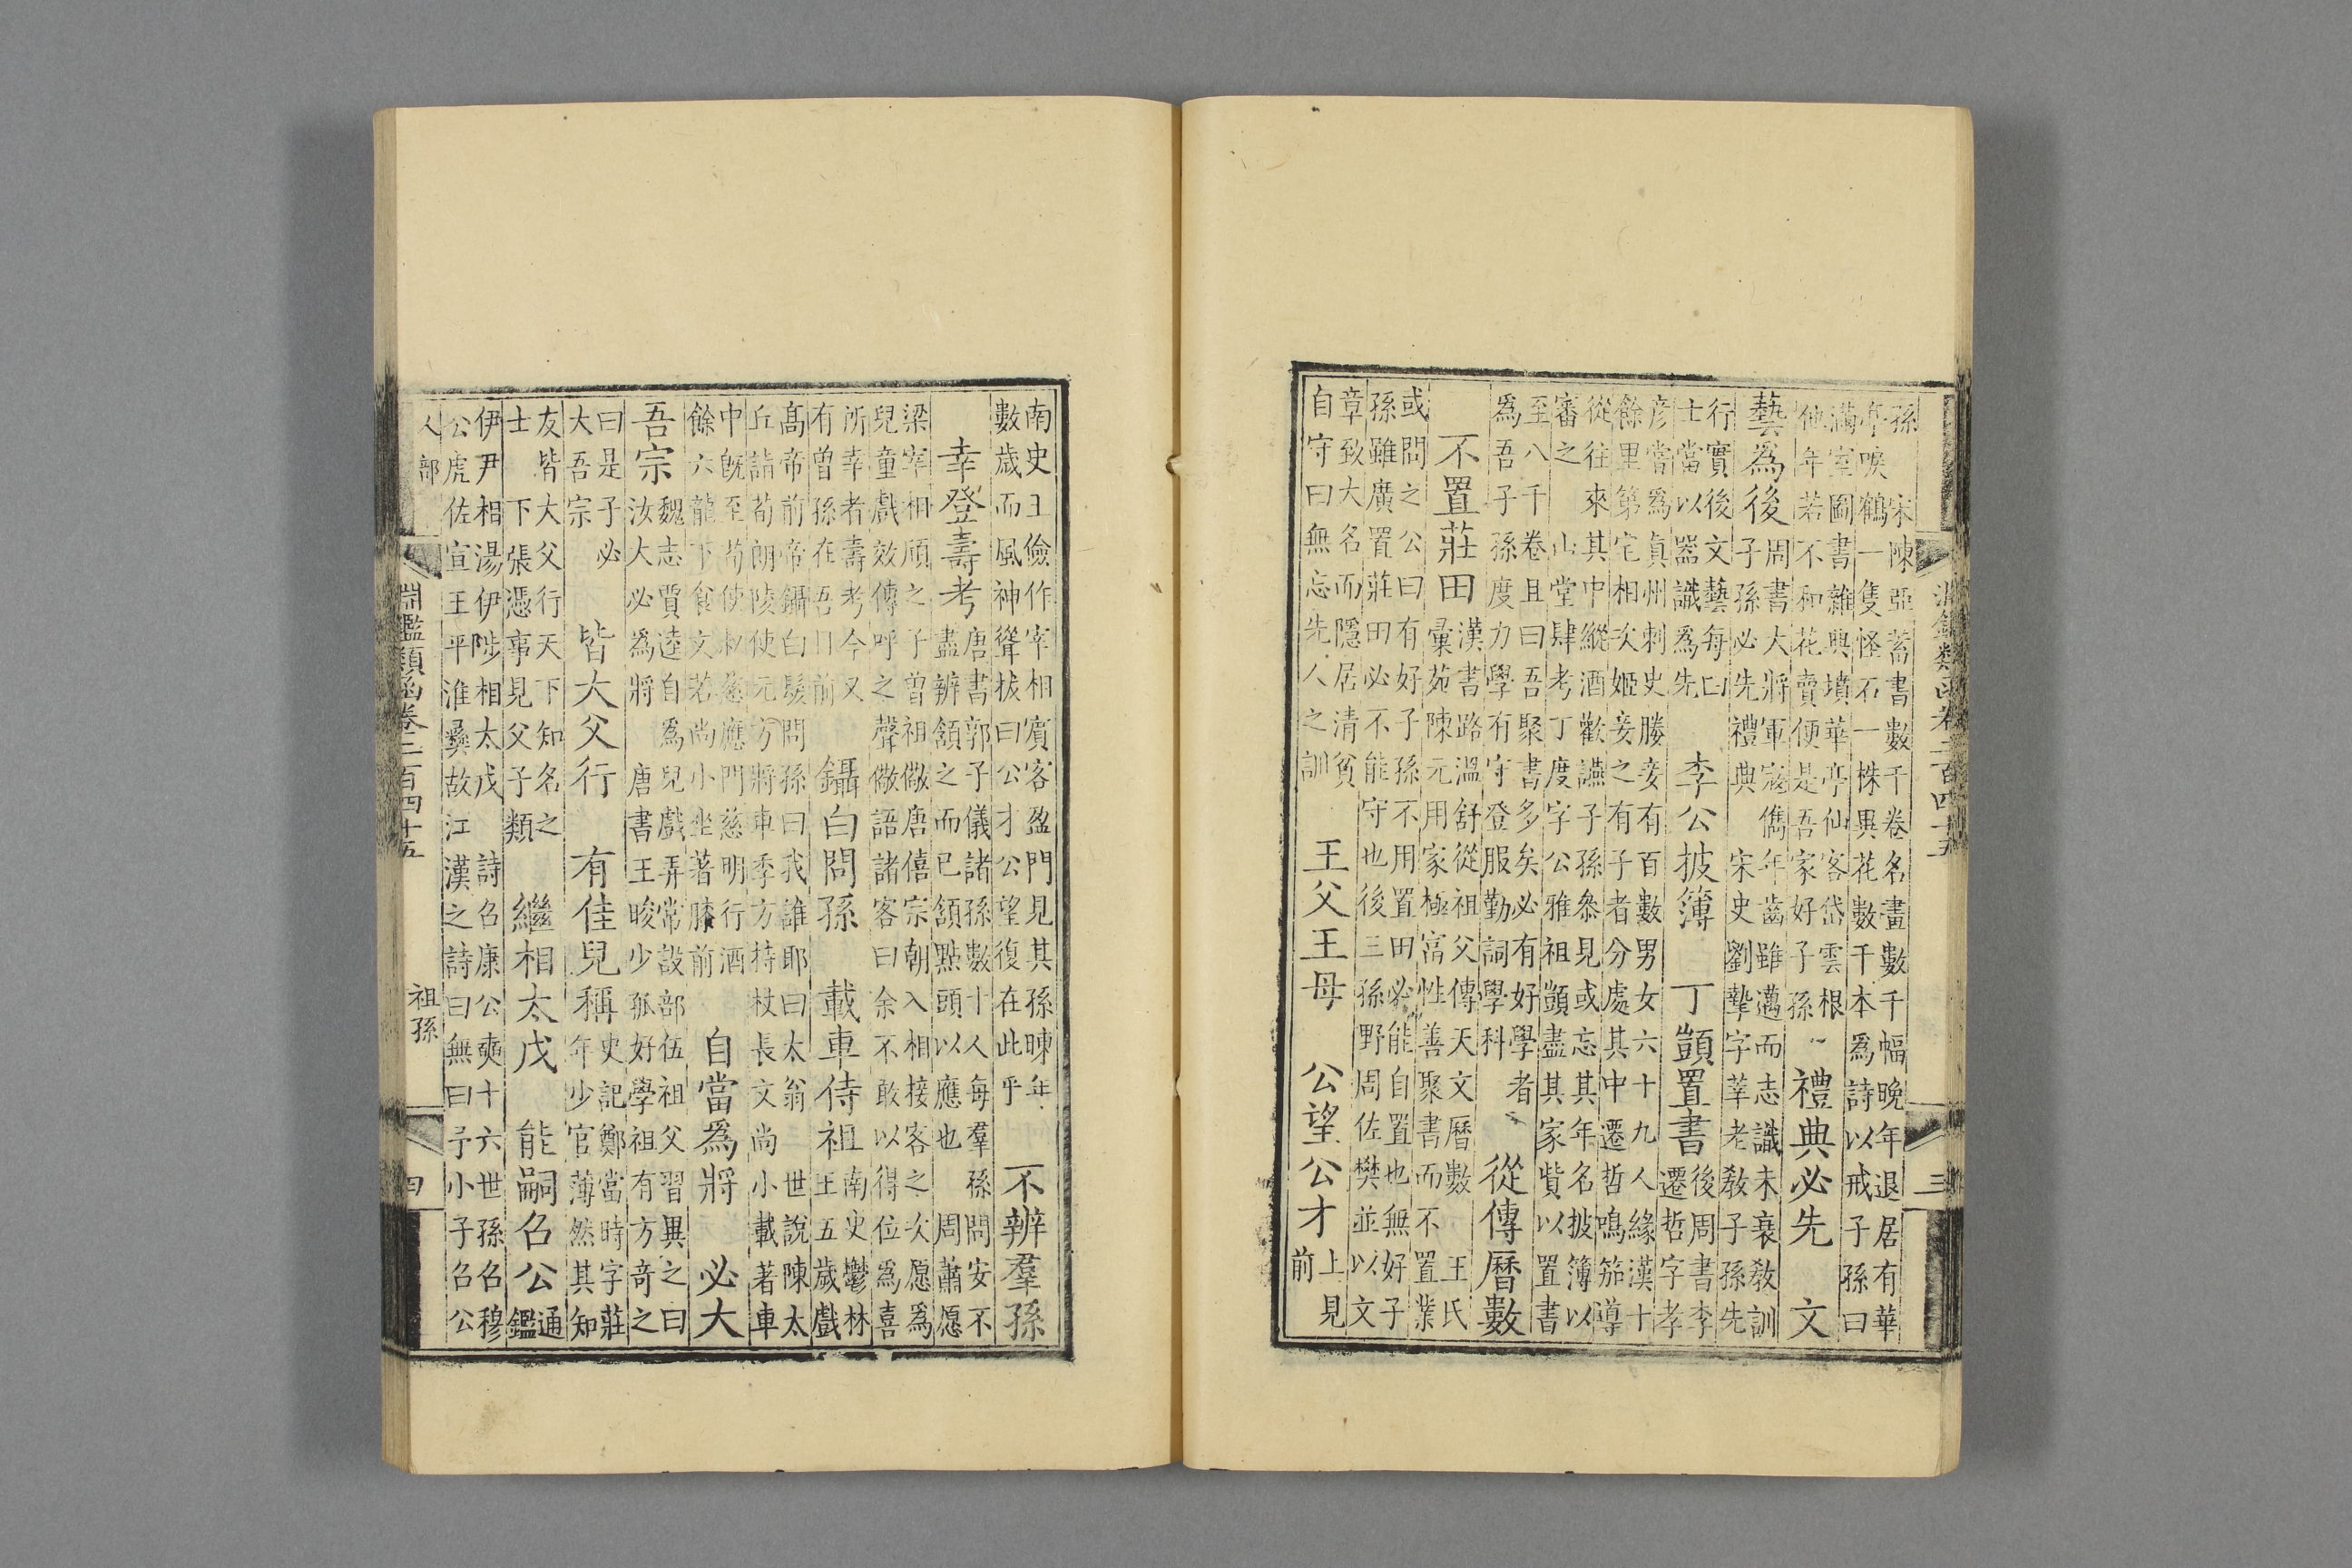 淵鑑類函卷二百四十五　三
孫　宋陳亞蓄書數千卷名畫數千幅晚年退居有華
亭唳鶴一隻怪石一株異花數千本爲詩以戒子孫曰
滿室圖書雜典墳華亭仙客岱雲根
他年若不和花賣便是吾家好子孫
禮典必先　文
藝爲後
周書大將軍寇儁年齒雖邁而志識未衰敎訓
子孫必先禮典　宋史劉摯字莘老敎子孫先
行實後文藝每曰
士當以器識爲先
李公披簿　丁顗置書
後周書李
遷哲字孝
彥嘗爲眞州刺史媵妾有百數男女六十九人緣漢十
餘里第宅相次姬妾之有子者分處其中遷哲鳴笳導
從往來其中縱酒歡讌子孫叅見或忘其年名披簿以
審之　山堂肆考丁度字公雅祖顗盡其家貲以置書
至八千卷且曰吾聚書多矣必有好學者
爲吾子孫度力學有守登服勤詞學科
從傳曆數
不置莊田
漢書路溫舒從祖父傳天文曆數　王氏
彙苑陳元用家極富性善聚書而不置業
或問之公曰有好子孫不用置田必能自置也無好子
孫雖廣置莊田必不能守也後三孫野周佐樊並以文
章致大名而隱居清貧
自守曰無忘先人之訓
王父王母　公望公才
上見
前
南史王儉作宰相賓客盈門見其孫暕年
數歲而風神聳拔曰公才公望復在此乎
不辨羣孫
幸登壽考
唐書郭子儀諸孫數十人每羣孫問安不
盡辨頷之而已頷點頭以應也　周蕭愿
梁宰相頎之子曾祖儆唐僖宗朝入相接客之次愿爲
兒童戲效傳呼之聲儆語諸客曰余不敢以得位爲喜
所幸者壽考今又
有曾孫在吾目前
鑷白問孫　載車侍祖
南史鬱林
王五歲戲
高帝前帝鑷白髮問孫曰我誰耶曰太翁　世說陳太
丘詣荀朗陵使元方將車季方持杖長文尚小載著車
中旣至荀使叔慈應門慈明行酒
餘六龍下食文若尚小坐著膝前
自當爲將　必大
吾宗
魏志賈逵自爲兒戲弄常設部伍祖父習異之曰
汝大必爲將　唐書王晙少孤好學祖有方奇之
曰是子必
大吾宗
皆大父行　有佳兒稱
史記鄭當時字莊
年少官薄然其知
友皆大父行天下知名之
士　下張憑事見父子類
繼相太戊　能嗣召公
通
鑑
伊尹相湯伊陟相太戊　詩召康公奭十六世孫召穆
公虎佐宣王平淮彝故江漢之詩曰無曰予小子召公
人部　淵鑑類函卷二百四十五　祖孫　四